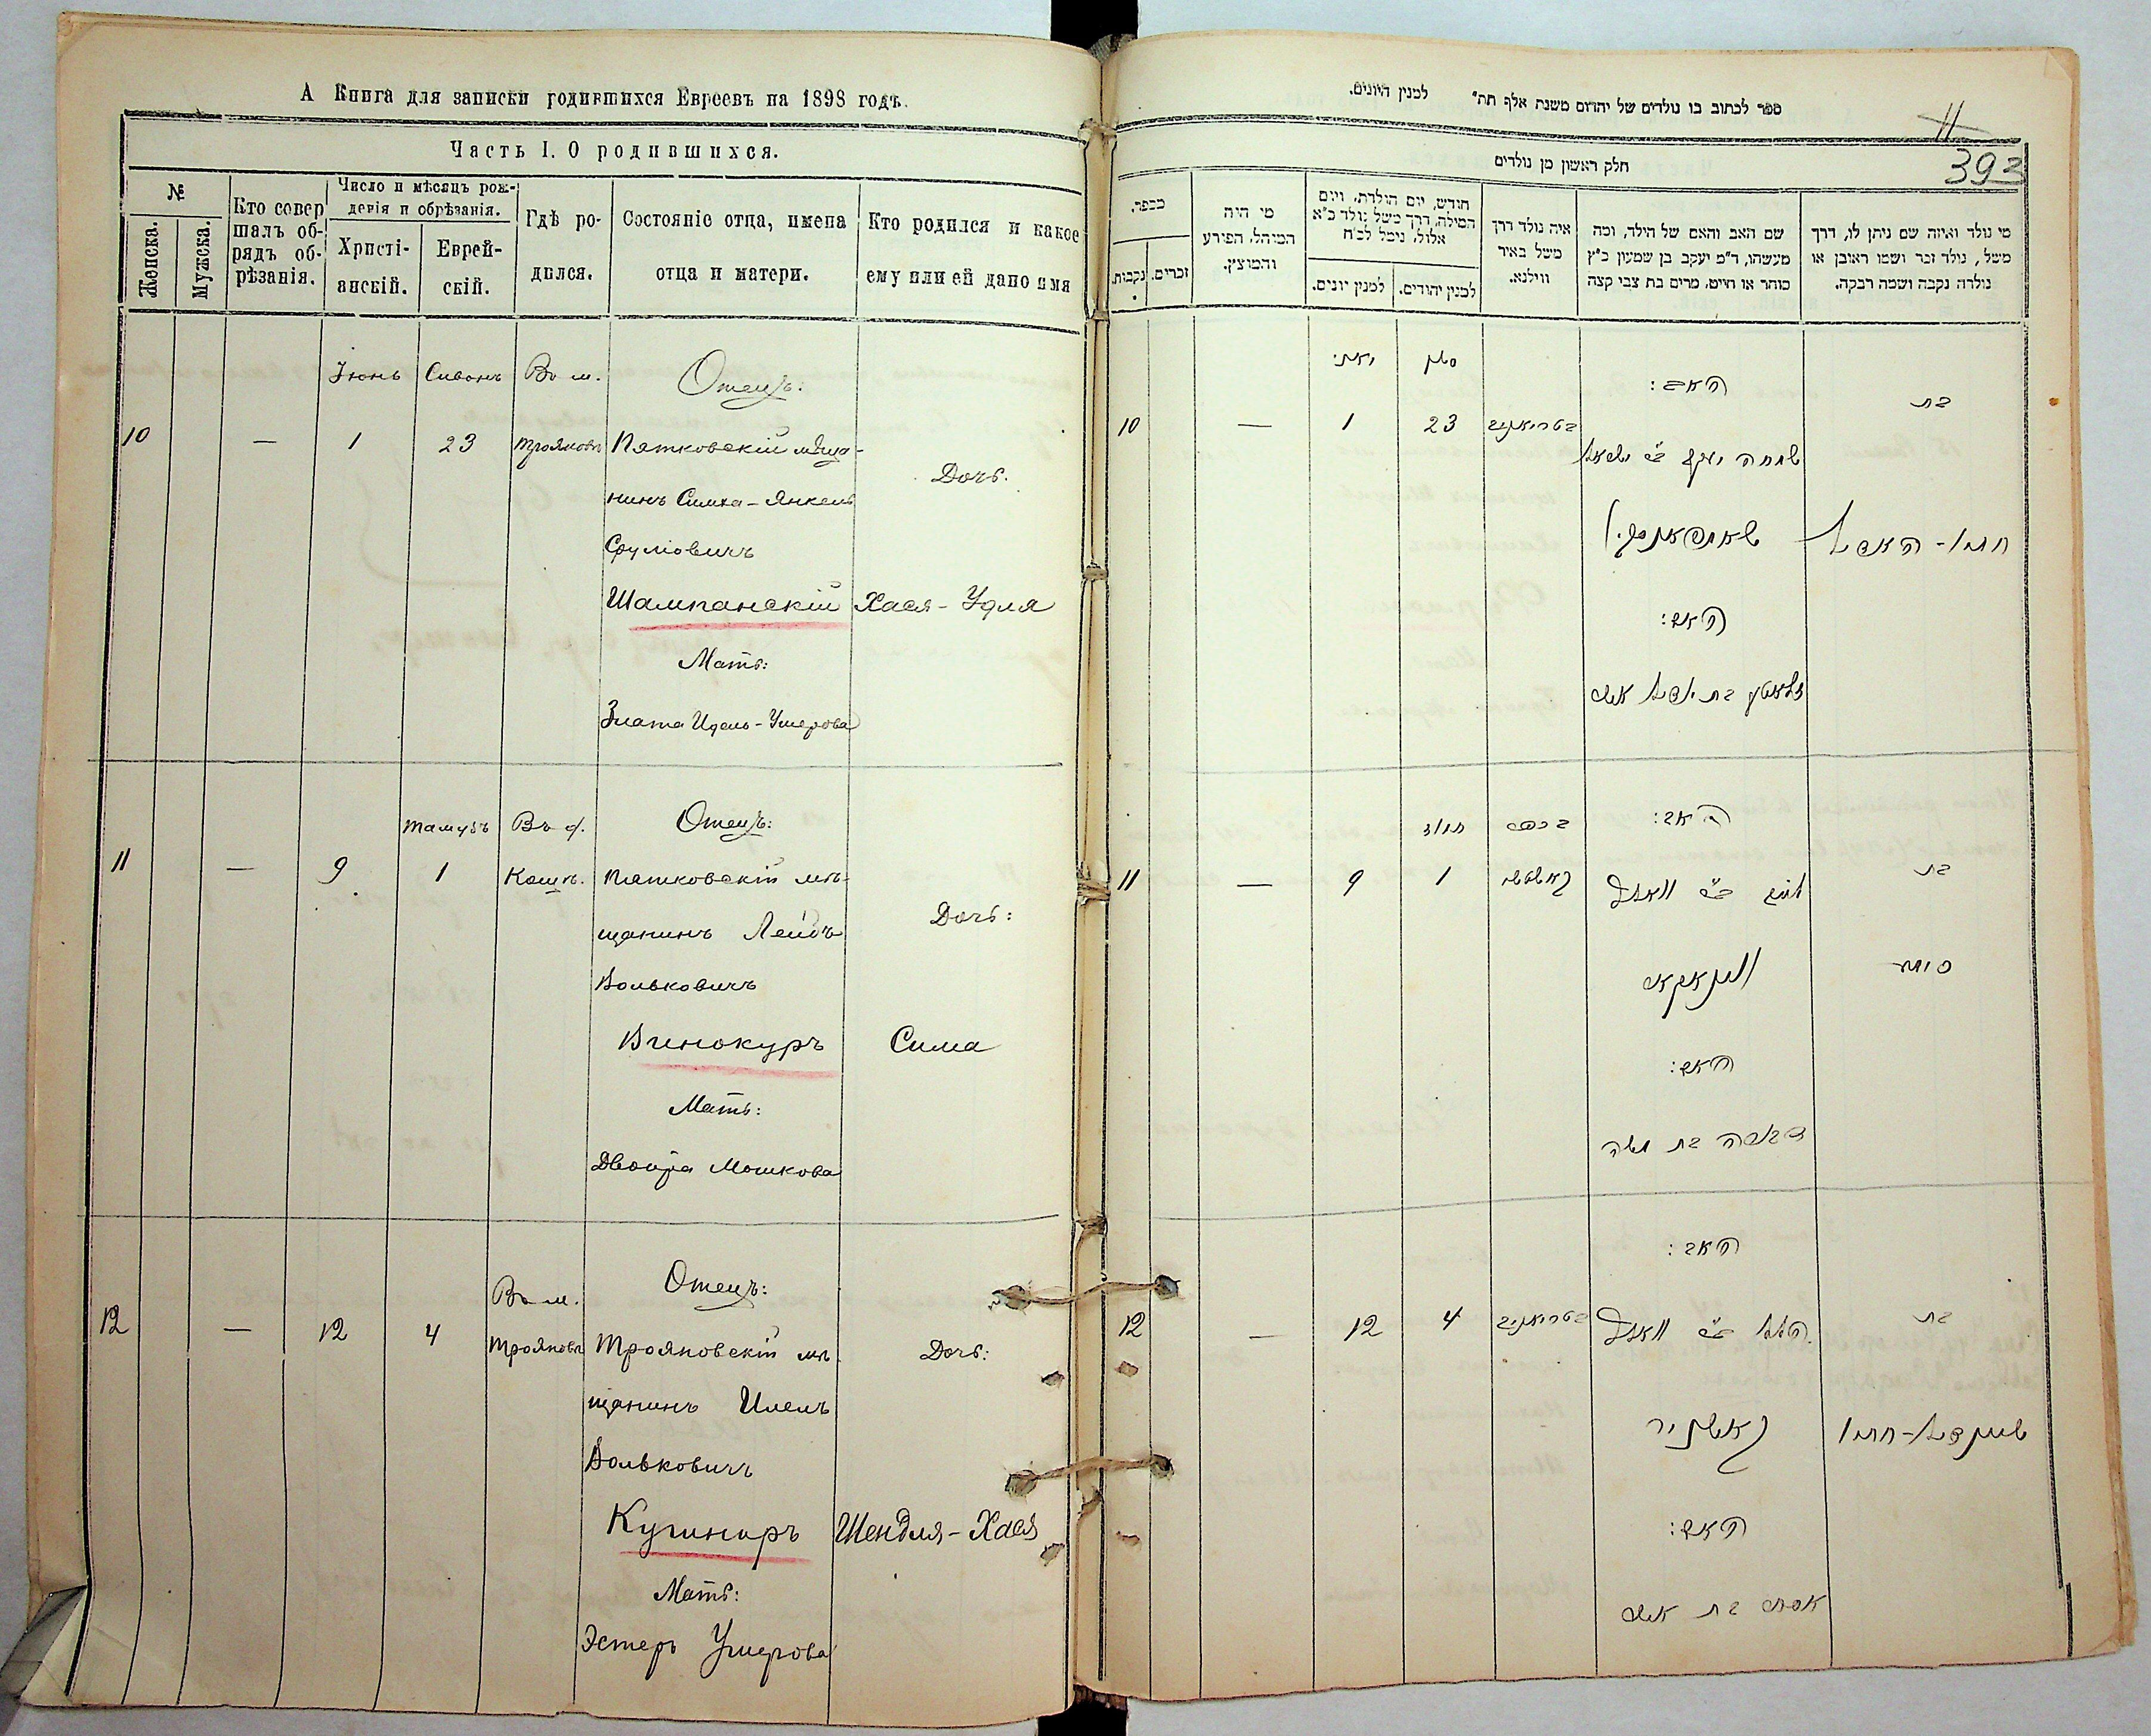 А Книга для записки родившихся Евреевъ на 1898 годъ.
Часть I. О родившихся.
№
Женска.
Мужска.
Кто совер
шалъ об-
рядъ об-
рѣзанія.
Число и мѣсяцъ рож-
денія и обрѣзанія.
Христі-
анскій.
Еврей-
скій.
Гдѣ ро-
дился.
Состояніе отца, имена
отца и матери.
Кто родился и какое
ему или ей дано имя
Іюнь Сивонъ Въ м. Отецъ:
10 — 1 23 Трояновъ Пятковскій мѣща-
нинъ Симха-Янкель
Дочь.
Срулiовичъ
Шампанскій Хася-Удля
Мать:
Злата Идель-Ушерова
Тамузъ Въ д. Отецъ:
11 — 9 1 Кошт. Пятковскій мѣ-
щанинъ Лейбъ
Дочь:
Вольковичъ
Винокуръ Сима
Мать:
Двойра Мошкова
Въ м. Отецъ:
12 — 12 4 Трояновъ Трояновскій мѣ-
Дочь:
щанинъ
Вольковичъ
Кушниръ Шендля-Хася
Мать:
Эстеръ Ушерова
ספר לכתוב בו נולדים של יהודים משנת אלף תת״ למנין היונים.
11
392
חלק ראשון מן נולדים
מספר.
נקבות.
זכרים.
מי היה
המוהל, הפורע
והמוצץ.
חודש, יום הולדת, ויום
המילה, דרך משל נולד כ״א
אלול, נימל לכ״ח
למנין יונים.
למנין יהודים.
איה נולד דרך
משל באיר
ווילנא.
שם האב והאם של הילד, ומה
מעשהו, ד״מ יעקב בן שמעון כ״ץ
סוחר או חייט, מרים בת צבי קצה
מי נולד ואיזה שם ניתן לו, דרך
משל, נולד זכר ושמו ראובן או
נולדה נקבה ושמה רבקה.
יוני סיון
האב:
בת
10 — 1 23
שמחה יעקב ב״ר ישראל
שאמפאנסקי
האם:
זלאטע בת יודל אשר
תמוז בכפר האב:
11 — 9 1
בת
לייב ב״ר וואלף
ווינאקור
סימא
האם:
דבורה בת משה
האב:
12 — 12 4
בת
הלל ב״ר וואלף
קושניר
שיינדל-חסיא
האם:
אסתר בת אשר